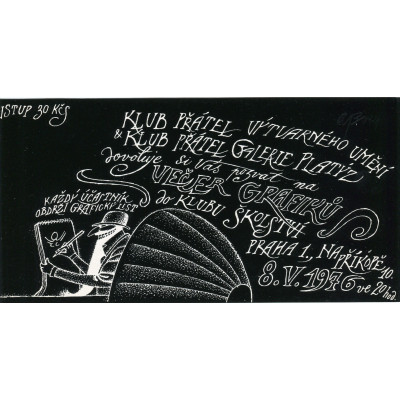 ISTUP 30 Kčs
KLUB PŘÁTEL VÝTVARNÉHO UMĚNÍ
& KLUB PŘÁTEL GALERIE PLATÝZ
dovoluje si Vás pozvat na
VEČER GRAFIKŮ
do KLUBU ŠKOLSTVÍ
PRAHA 1, NA PŘÍKOPĚ 10
8. V. 1976 ve 20 hod.
KAŽDÝ ÚČASTNÍK
OBDRŽÍ GRAFICKÝ LIST